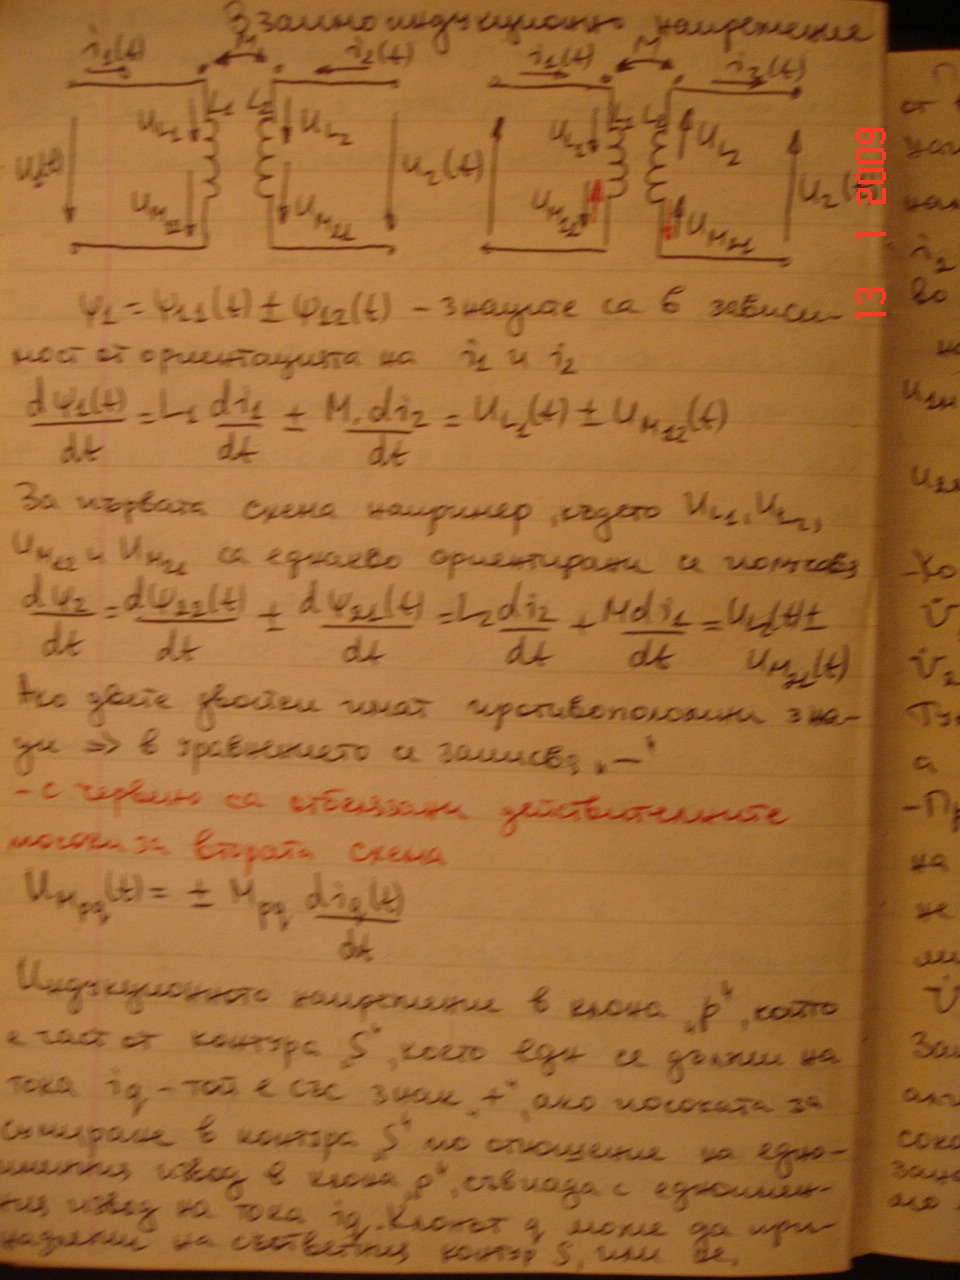 Взаимноиндукционно напрежение
i₁(t) M i₂(t) i₁(t) M i₂(t)
L₁ L₂ L₁ L₂
U_L₁ U_L₂ U_L₂
U₁(t) U₂(t) U₂(
U_M₁₂ U_M₂₁ U_M₁₂ U_M₂₁
13 1 2009
ψ₁ = ψ₁₁(t) ± ψ₁₂(t) – знаците са в зависи-
мост от ориентацията на i₁ и i₂
dψ₁(t)/dt = L₁ di₁/dt ± M.di₂/dt = U_L₁(t) ± U_M₁₂(t)
За първата схема например, където U_L₁, U_L₂,
U_M₁₂ и U_M₂₁ са еднакво ориентирани се получава
dψ₂/dt = dψ₂₂(t)/dt ± dψ₂₁(t)/dt = L₂ di₂/dt + M di₁/dt = U_L₂(t) ±
U_M₂₁(t)
Ако двете двойки имат противоположни зна-
ци => в уравнението се записва „–“
- с червено са отбелязани действителните
посоки за втората схема
U_Mpq(t) = ± M_pq di_q(t)/dt
Индукционното напрежение в клона „p“, който
е част от контура „S“, което е се дължи на
тока i_q – той е със знак „+“, ако посоката за
сумиране в контура „S“ по отношение на едно-
именния извод в клона „p“, съвпада с едноимен-
ния извод на тока i_q. Клонът q може да при-
надлежи на съответния контур S, или не.